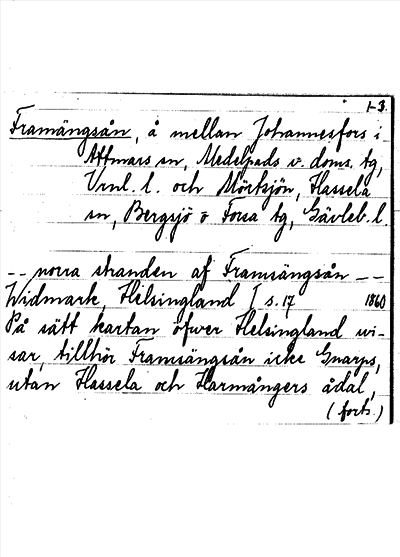 1-3.
Framängsån, å mellan Johannesfors i
Attmars sn, Medelpads v. doms. tg,
Vrnl. l. och Mörtsjön, Hassela
sn, Bergsjö o Forsa tg, Gävleb. l.
-- norra stranden af Framsängsån --
Widmark, Helsingland I s. 17 1860
På sätt kartan öfwer Helsingland wi-
sar, tillhör Framsängsån icke Gnarps,
utan Hassela och Harmångers ådal,
(forts.)